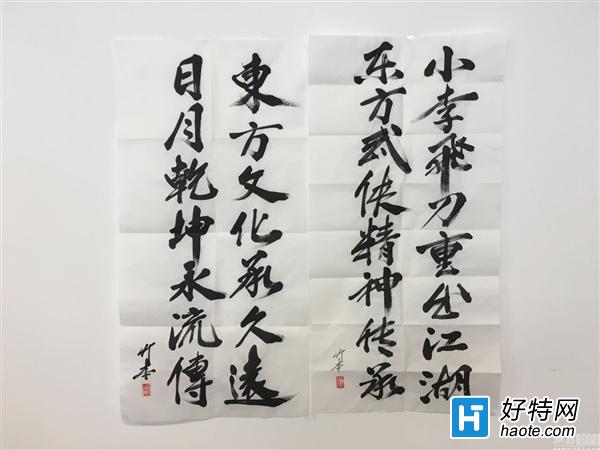 小李飛刀重出江湖
东方武侠精神传承
東方文化承久遠
日月乾坤永流傳
好特网
haote.com